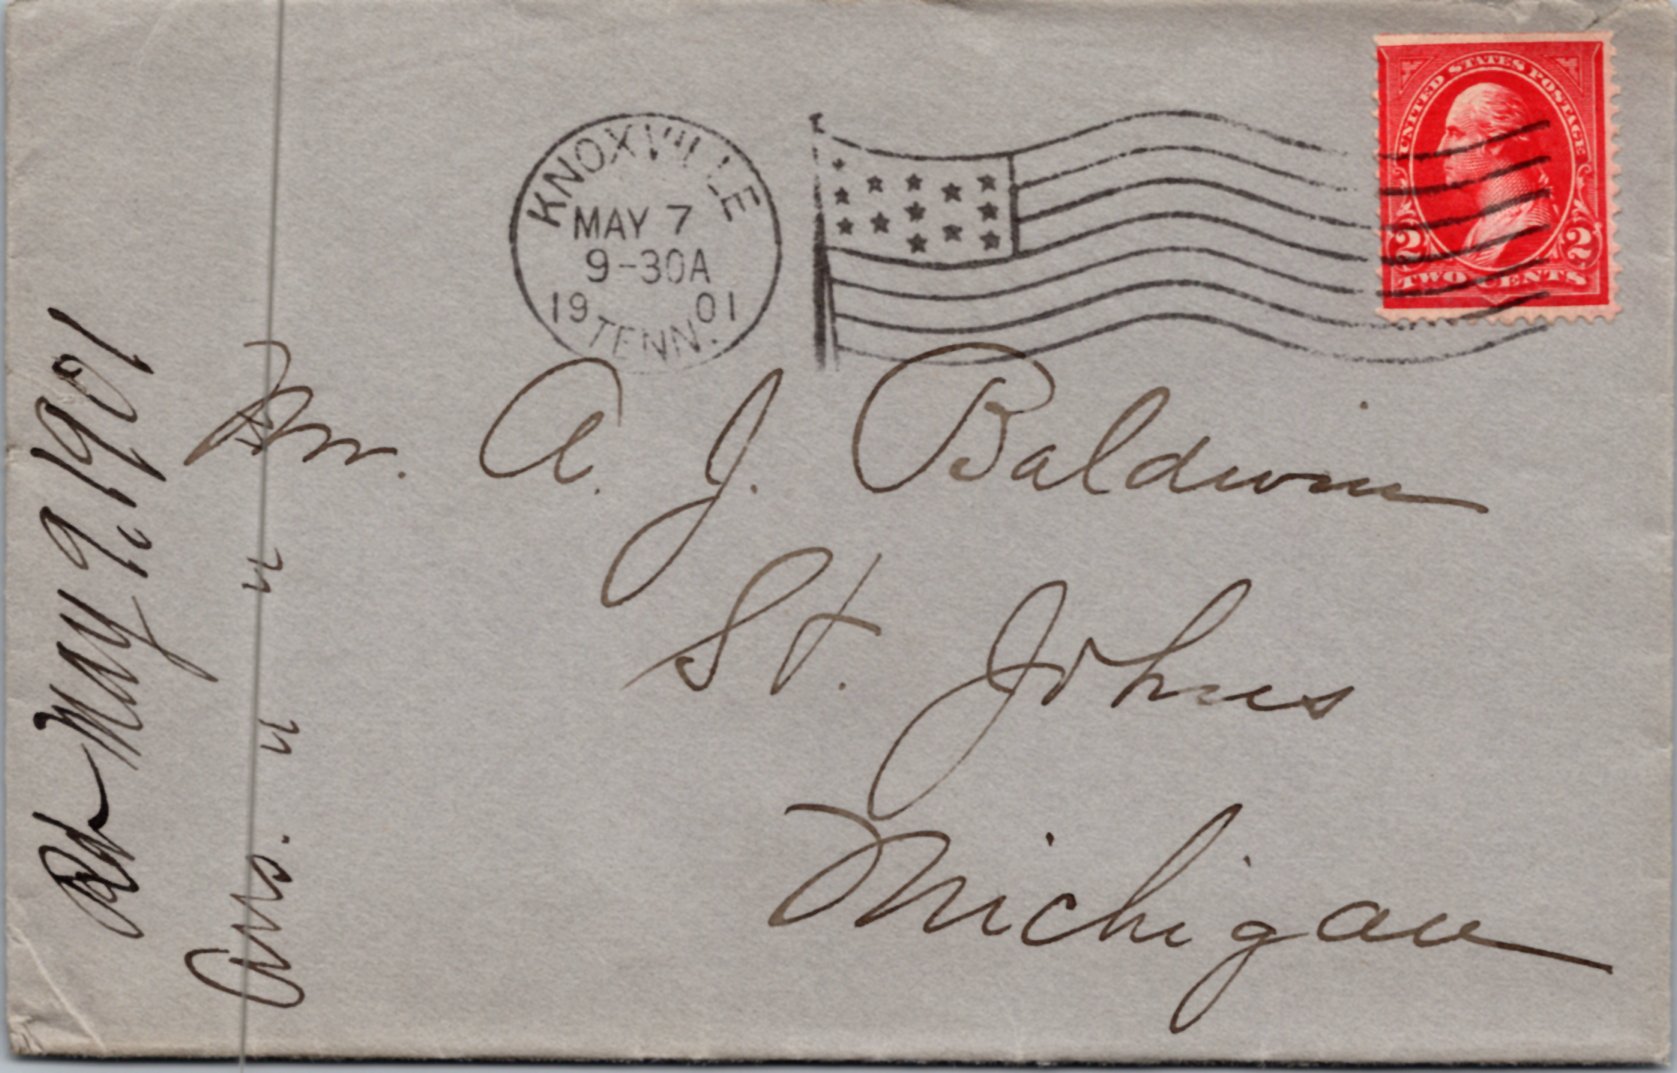 KNOXVILLE
MAY 7
9-30A
19 01
TENN.
UNITED STATES POSTAGE
2 2
TWO CENTS
Mr. A. J. Baldwin
St. Johns
Michigan
Rd May 9, 1901
Ans. " "